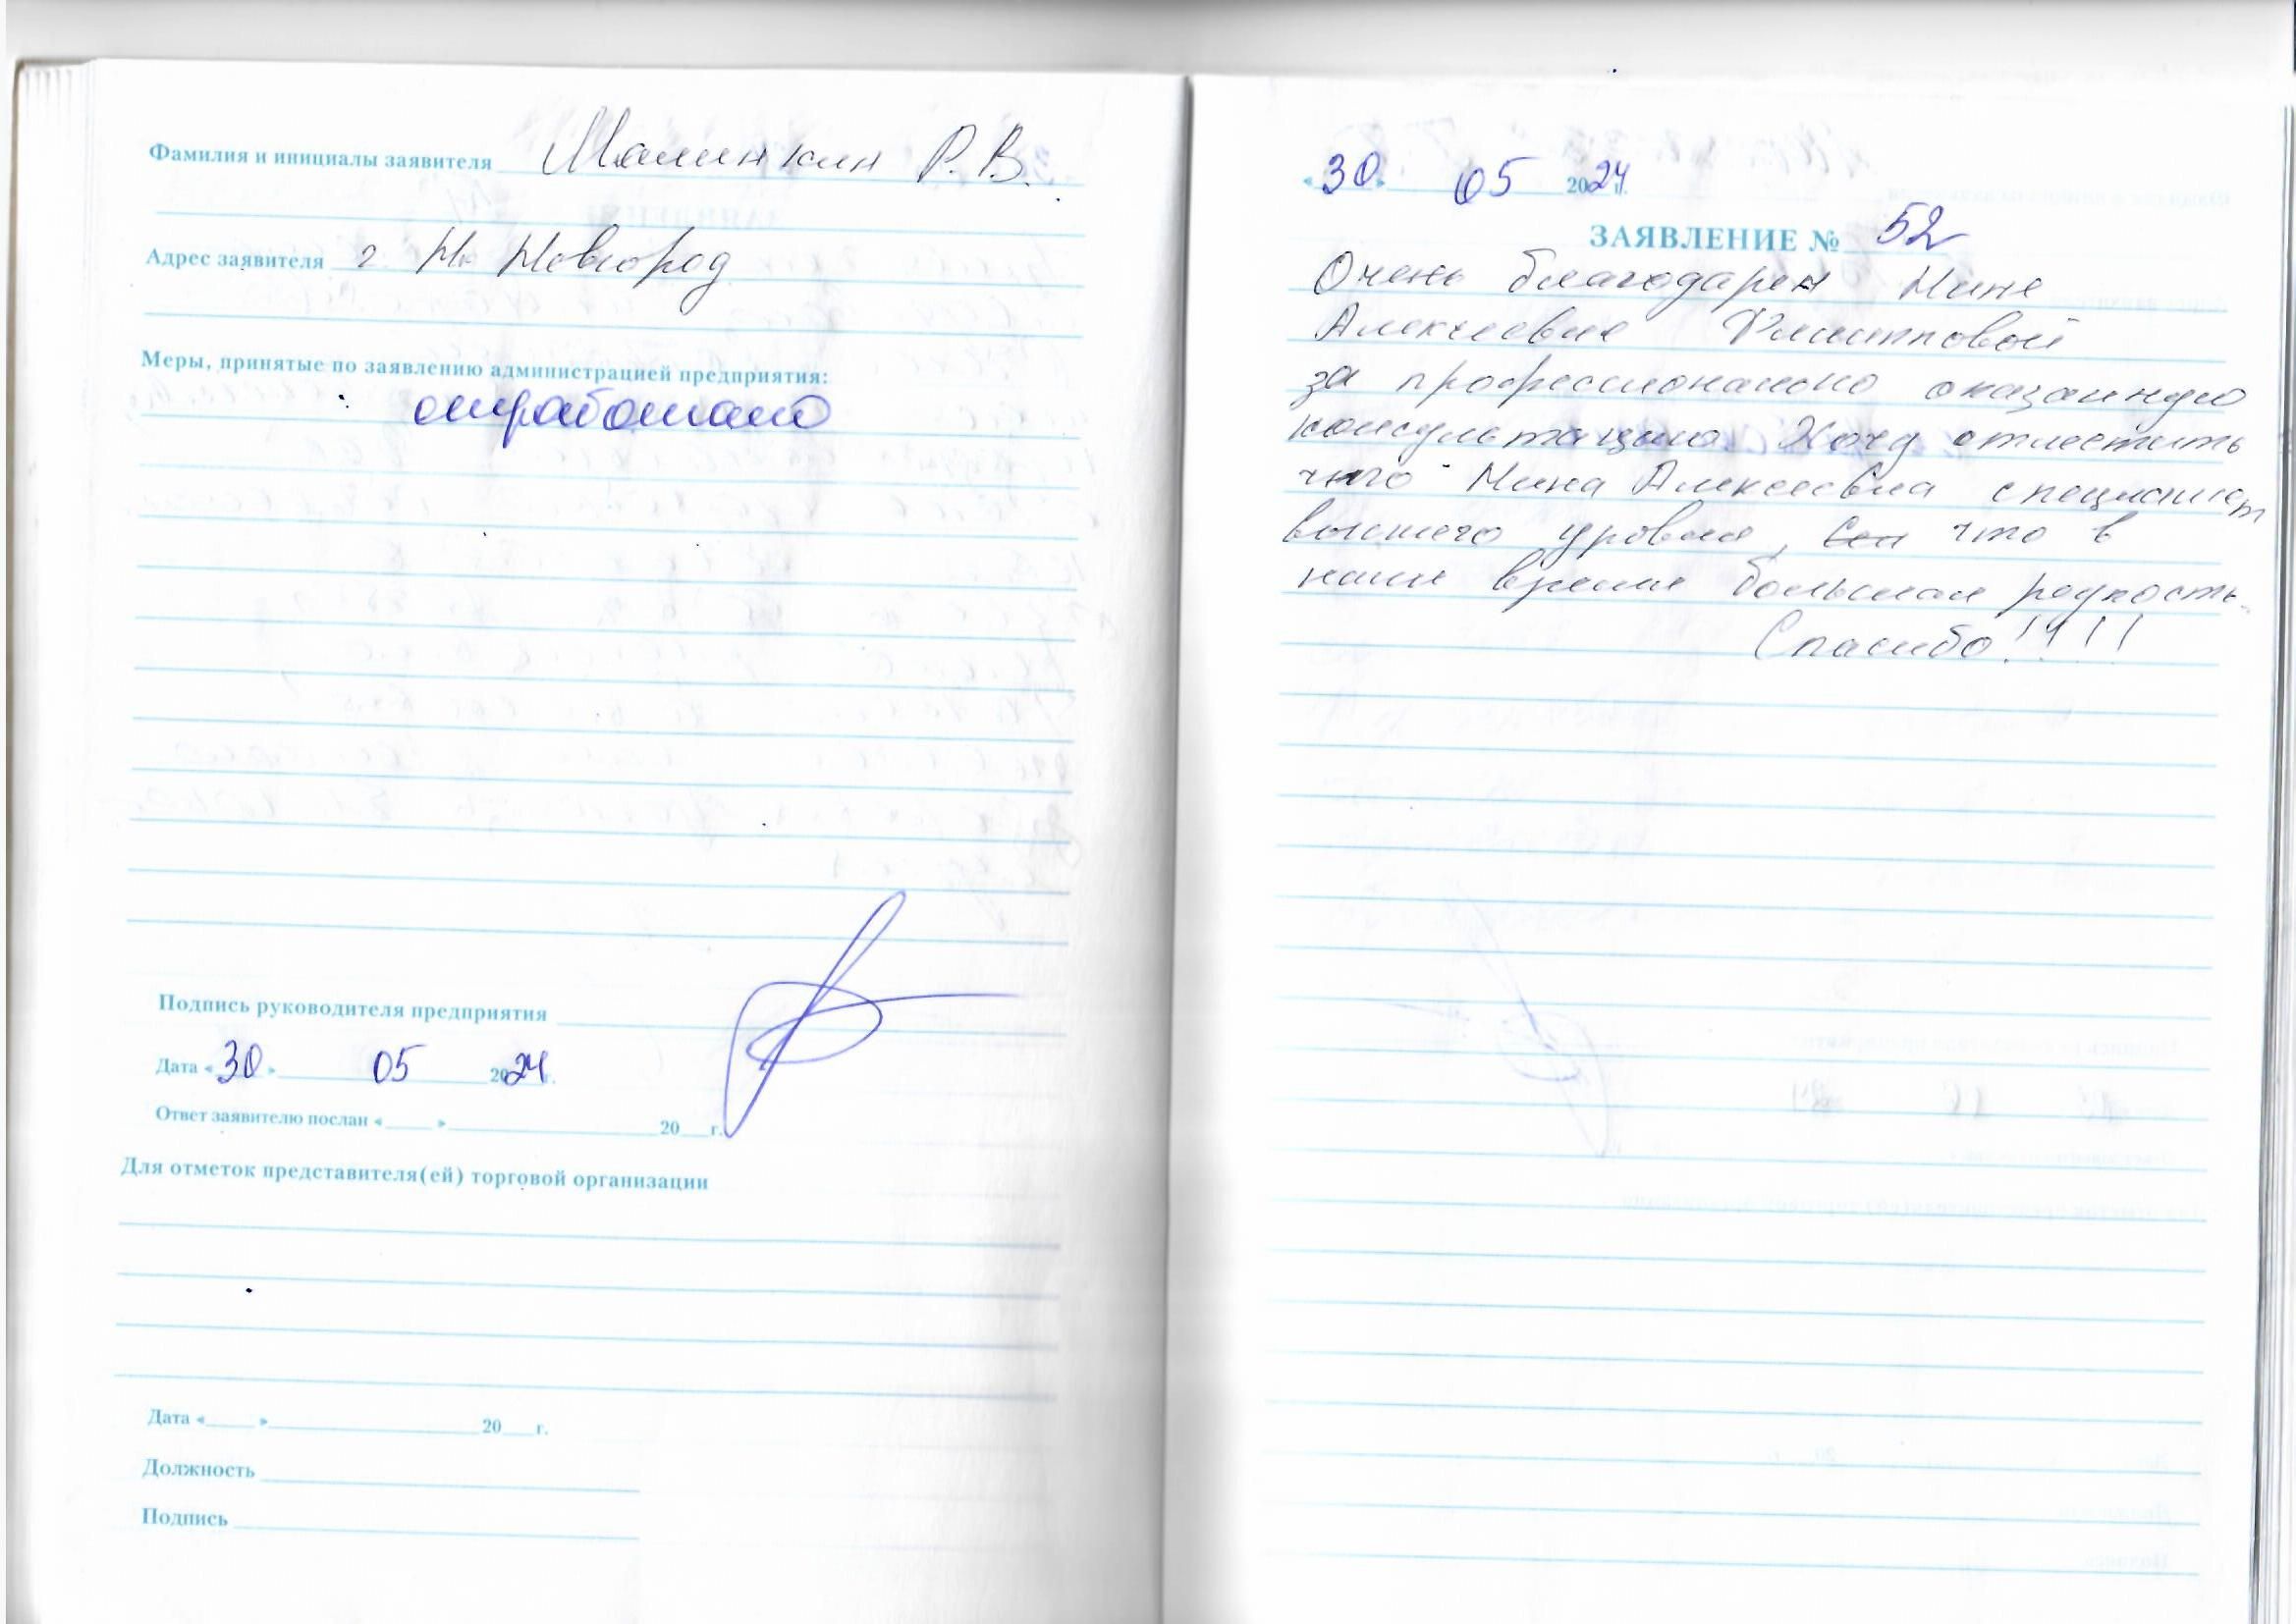 Фамилия и инициалы заявителя Малинкин Р.В.
Адрес заявителя г. Н. Новгород
Меры, принятые по заявлению администрацией предприятия:
отработано
Подпись руководителя предприятия
Дата «30» 05 2024 г.
Ответ заявителю послан «____» ____ 20___г.
Для отметок представителя(ей) торговой организации
Дата «____» ____ 20___г.
Должность
Подпись
«30» 05 2024 г.
ЗАЯВЛЕНИЕ № 52
Очень благодарен Нине
Алексеевне Филипповой
за профессионально оказанную
консультацию. Хочу отметить
что Нина Алексеевна специалист
высшего уровня, что в
наше время большая редкость.
Спасибо!!!!